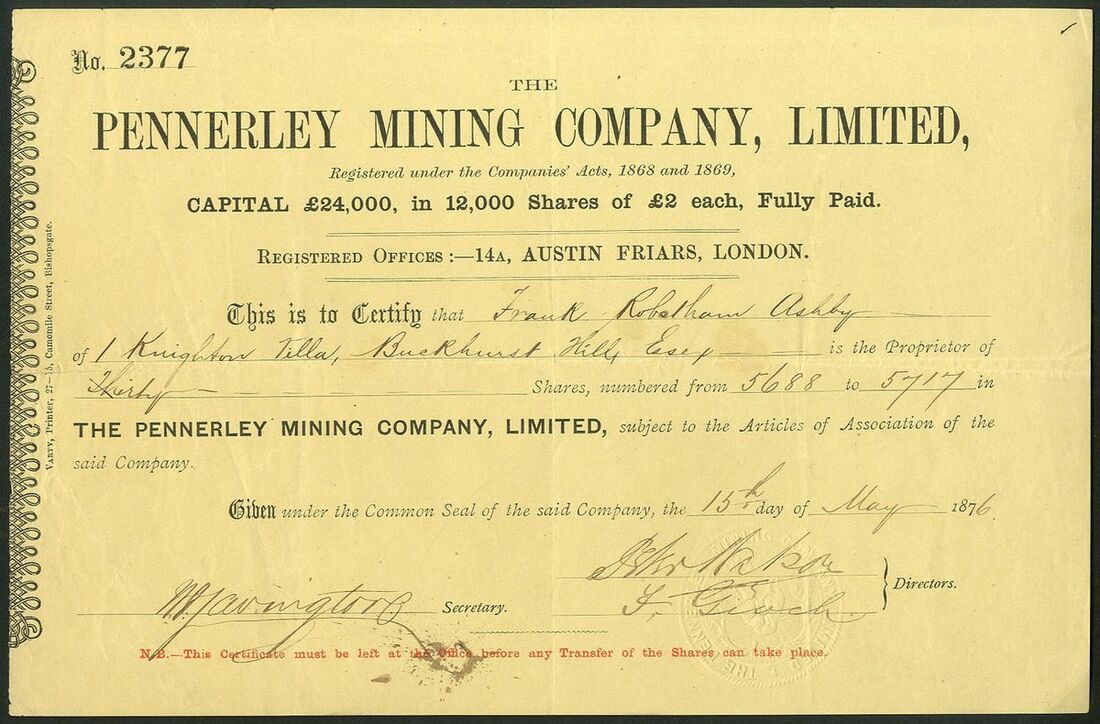 No. 2377
THE
PENNERLEY MINING COMPANY, LIMITED,
Registered under the Companies' Acts, 1868 and 1869,
CAPITAL £24,000, in 12,000 Shares of £2 each, Fully Paid.
REGISTERED OFFICES :—14A, AUSTIN FRIARS, LONDON.
This is to Certify that Frank Robotham Ashby
of 1 Knighton Villa, Buckhurst Hill, Essex is the Proprietor of
Thirty Shares, numbered from 5688 to 5717 in
THE PENNERLEY MINING COMPANY, LIMITED, subject to the Articles of Association of the
said Company.
Given under the Common Seal of the said Company, the 15th day of May 1876.
Directors.
Secretary.
N.B.—This Certificate must be left at the Office before any Transfer of the Shares can take place.
VARTY, Printer, 27-15, Camomile Street, Bishopsgate.